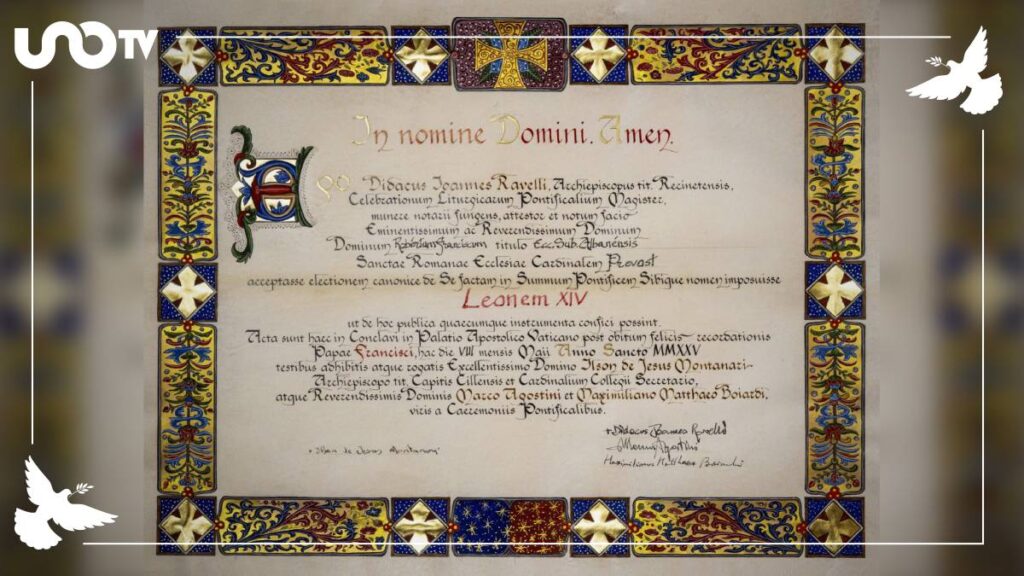 UNO TV
In nomine Domini. Amen.
Ego Didacus Joannes Ravelli, Archiepiscopus tit. Recinetensis,
Celebrationum Liturgicarum Pontificalium Magister,
munere notarii fungens, attestor et notum facio
Eminentissimum ac Reverendissimum Dominum
Dominum Robertum Franciscum titulo Ecc. Sub. Albanensis
Sanctae Romanae Ecclesiae Cardinalem Prevost
acceptasse electionem canonice de Se factam in Summum Pontificem Sibique nomen imposuisse
Leonem XIV
ut de hoc publica quaecumque instrumenta confici possint.
Acta sunt haec in Conclavi in Palatio Apostolico Vaticano post obitum felicis recordationis
Papae Francisci, hac die VIII mensis Maii Anno Sancto MMXXV
testibus adhibitis atque rogatis Excellentissimo Domino Ilson de Jesus Montanari
Archiepiscopo tit. Capitis Cillensis et Cardinalium Collegii Secretario,
atque Reverendissimis Dominis Marco Agostini et Maximiliano Matthaeo Boiardi,
viris a Caeremoniis Pontificalibus.
+ Didacus Joannes Ravelli
+ Ilson de Jesus Montanari